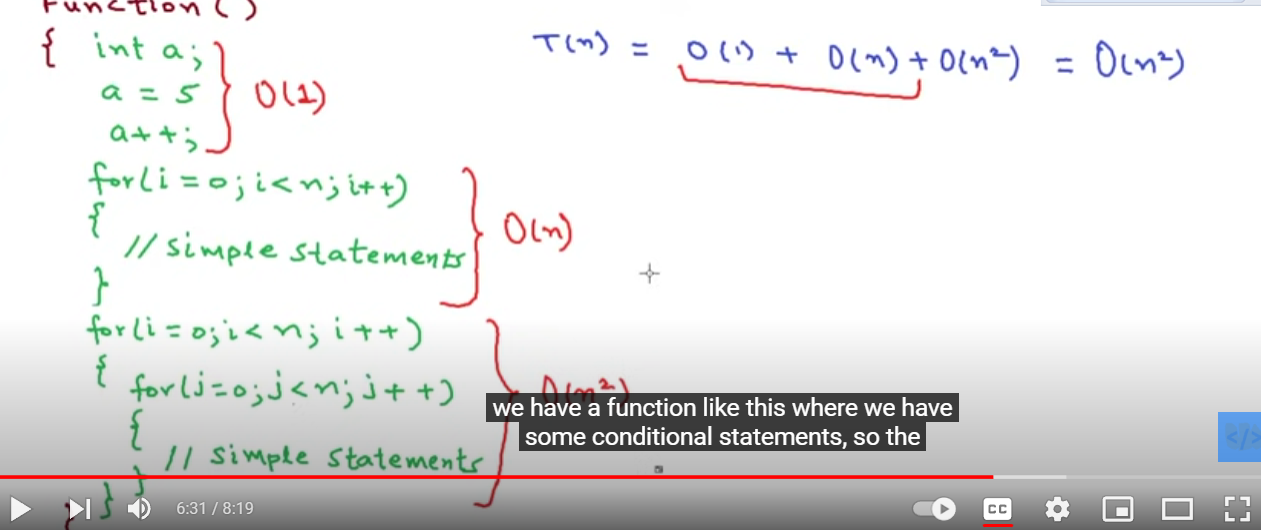 Function()
{ int a;
a = 5
a++;
O(1)
T(n) = O(1) + O(n) + O(n²) = O(n²)
for(i = 0; i < n; i++)
{
// simple statements
}
O(n)
for(i = 0; i < n; i++)
{
for(j = 0; j < n; j++)
{
// simple statements
}
}
}
O(n²)
we have a function like this where we have
some conditional statements, so the
6:31 / 8:19
CC
</>